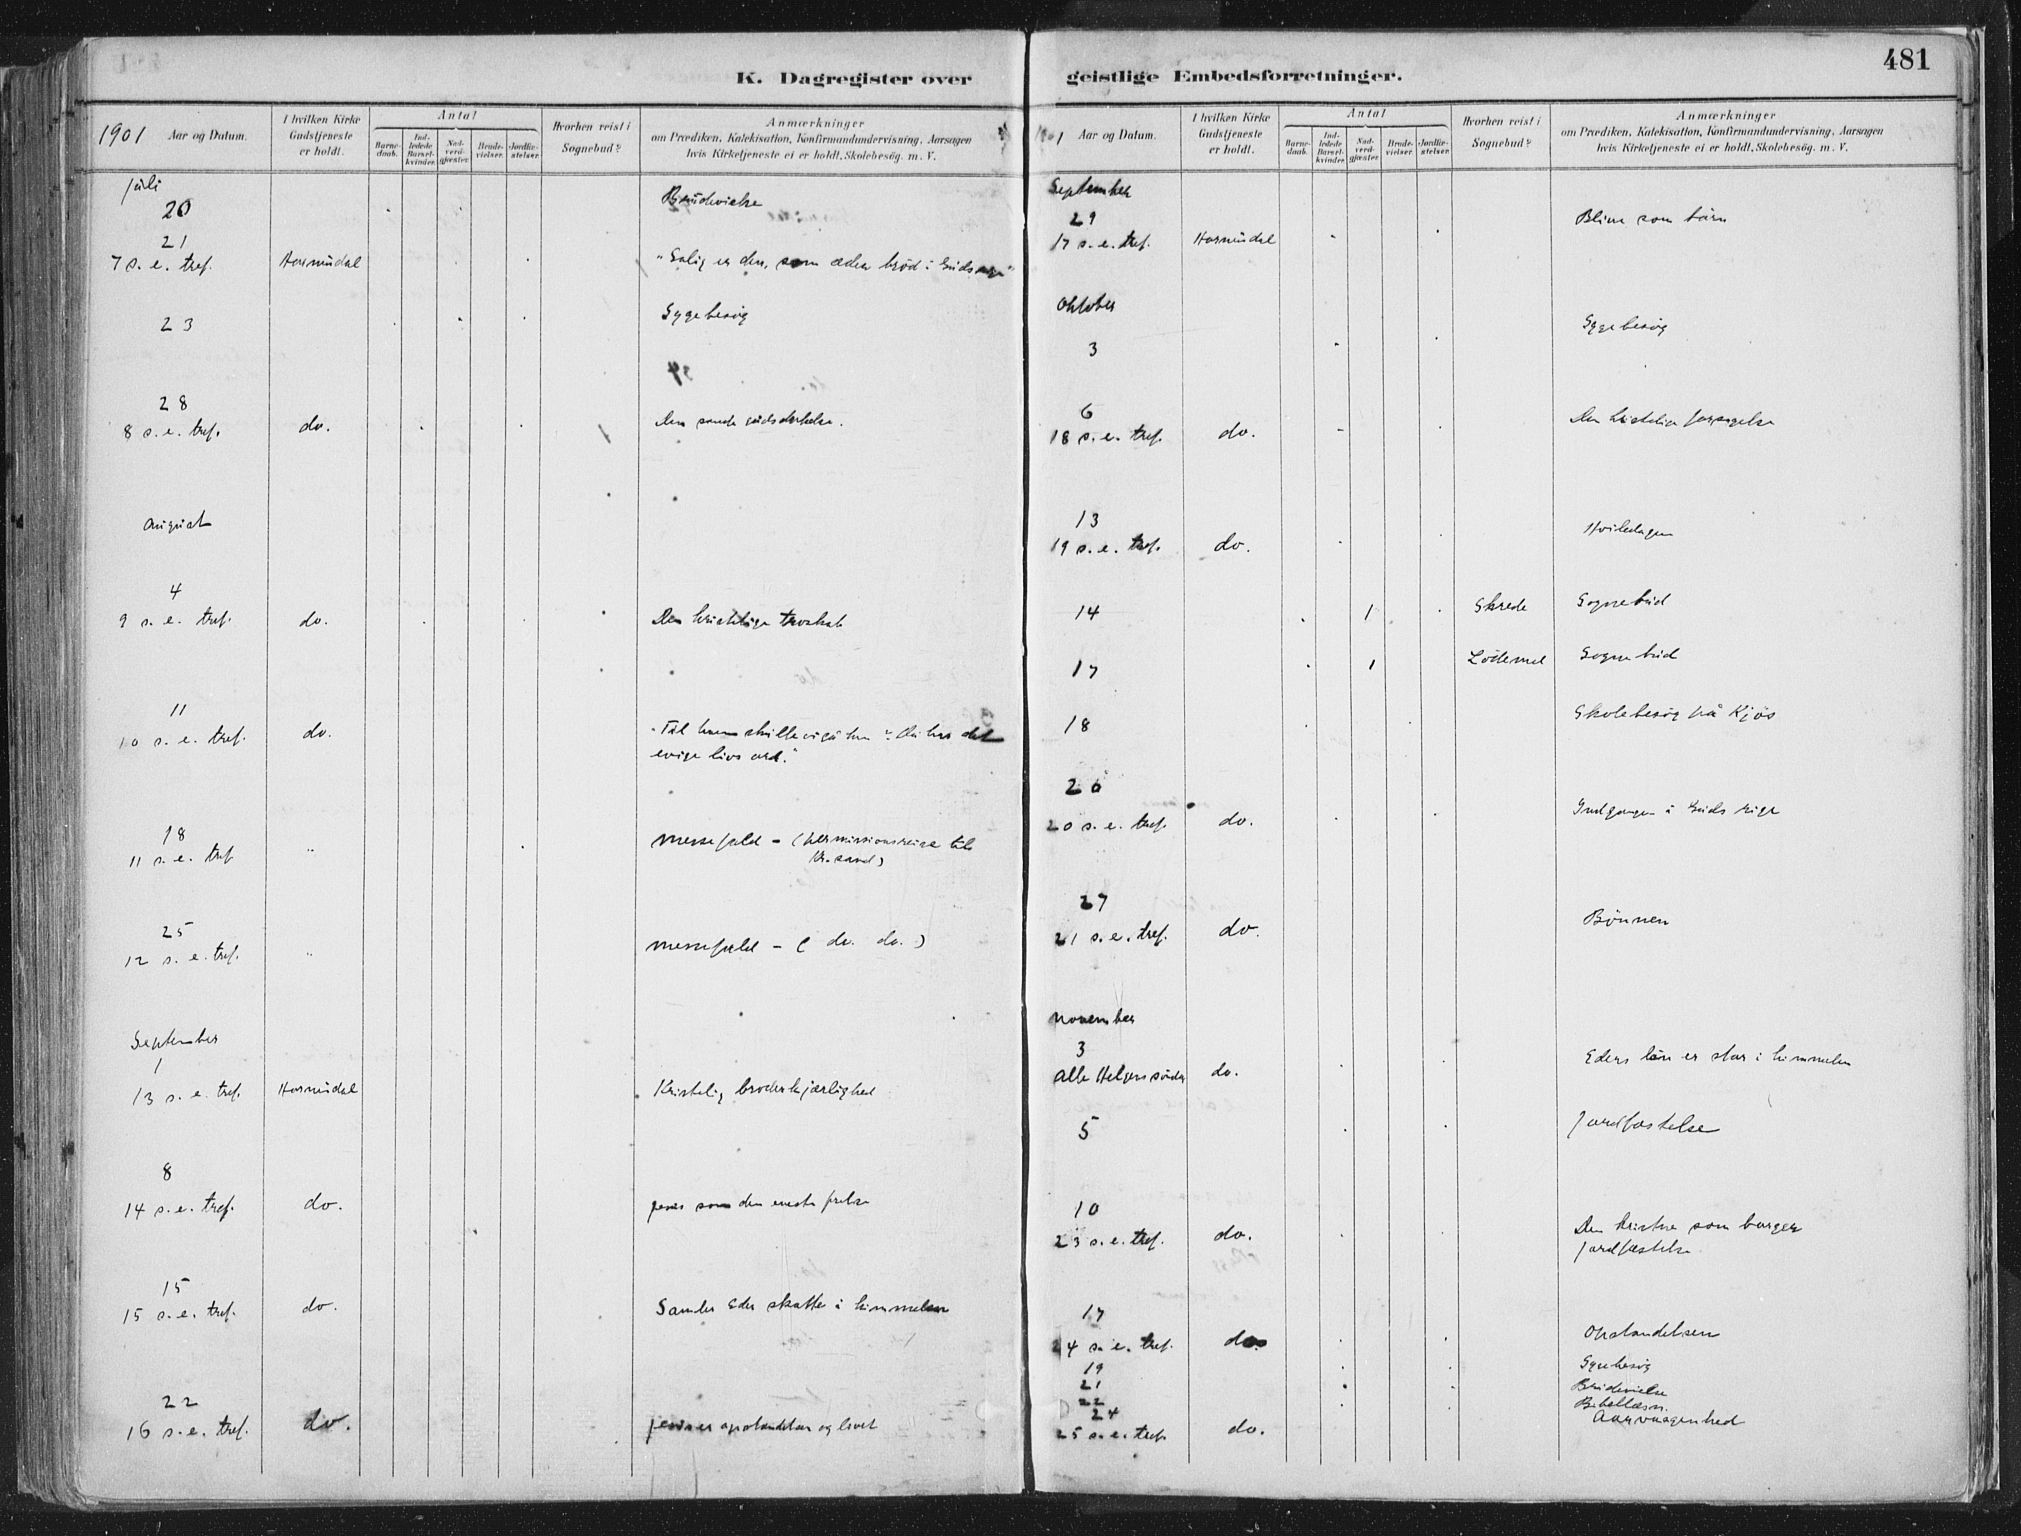 K. Dagregister over
1901 Aar og Datum.
I hvilken Kirke Gudstjeneste er holdt.
Antal
Barnedaab.
Indledede Barselkvinder.
Nadverdgjæster.
Brudevielser.
Jordfæstelser.
Hvorhen reist i Sognebud?
Anmærkninger
om Prædiken, Katekisation, Konfirmandundervisning, Aarsagen
hvis Kirketjeneste ei er holdt, Skolebesøg. m. V.
juli
20 Brudevielse
21
7 s. e. tref. Hornindal "Salig er den, som æder brød i Guds rige"
23 Sygebesøg
28
8 s. e. tref. do. Den sande gudsdyrkelse.
august
4
9 s. e. tref. do. Den kristelige troskab
11
10 s. e. tref. do. "Til hvem skulle vi gå hen? du har det
evige livs ord."
18
11 s. e. tref " messefald - (sjømissionsreise til
Kr.sund)
25
12 s. e. tref. " messefald - ( do. do. )
September
1
13 s. e. tref. Hornindal Kristelig broderkjærlighed
8
14 s. e. tref. do. jesus som den eneste frelse
15
15 s. e. tref. do. Samler Eder skatte i himmelen
22
16 s. e. tref. do. jesus er opstandelsen og livet
481
geistlige Embedsforretninger.
1901 Aar og Datum.
I hvilken Kirke Gudstjeneste er holdt.
Antal
Barnedaab.
Indledede Barselkvinder.
Nadverdgjæster.
Brudevielser.
Jordfæstelser.
Hvorhen reist i Sognebud?
Anmærkninger
om Prædiken, Katekisation, Konfirmandundervisning, Aarsagen
hvis Kirketjeneste ei er holdt, Skolebesøg. m. V.
September
29 Blive som børn
17 s. e. tref. Hornindal
Oktober
3 Sygebesøg
6
18 s. e. tref. do. Den kristelige forsagelse
13
19 s. e. tref. do. Hviledagen
14 1 Skrede Sognebud
17 1 Lødemel Sognebud
18 Skolebesøg på Kjøs
20
20 s. e. tref. do. Indgangen i Guds rige
27
21 s. e. tref. do. Bønnen
november
3
Alle Helgens søndag do. Eders løn er stor i himmelen
5 Jordfæstelse
10
23 s. e. tref. do. Den kristne som borger
Jordfæstelse
17
24 s. e. tref. do. Opstandelsen
19 Sygebesøg
21 Brudevielse
22 Bibellæsn.
24 Aarvaagenhed
25 s. e. tref. do.